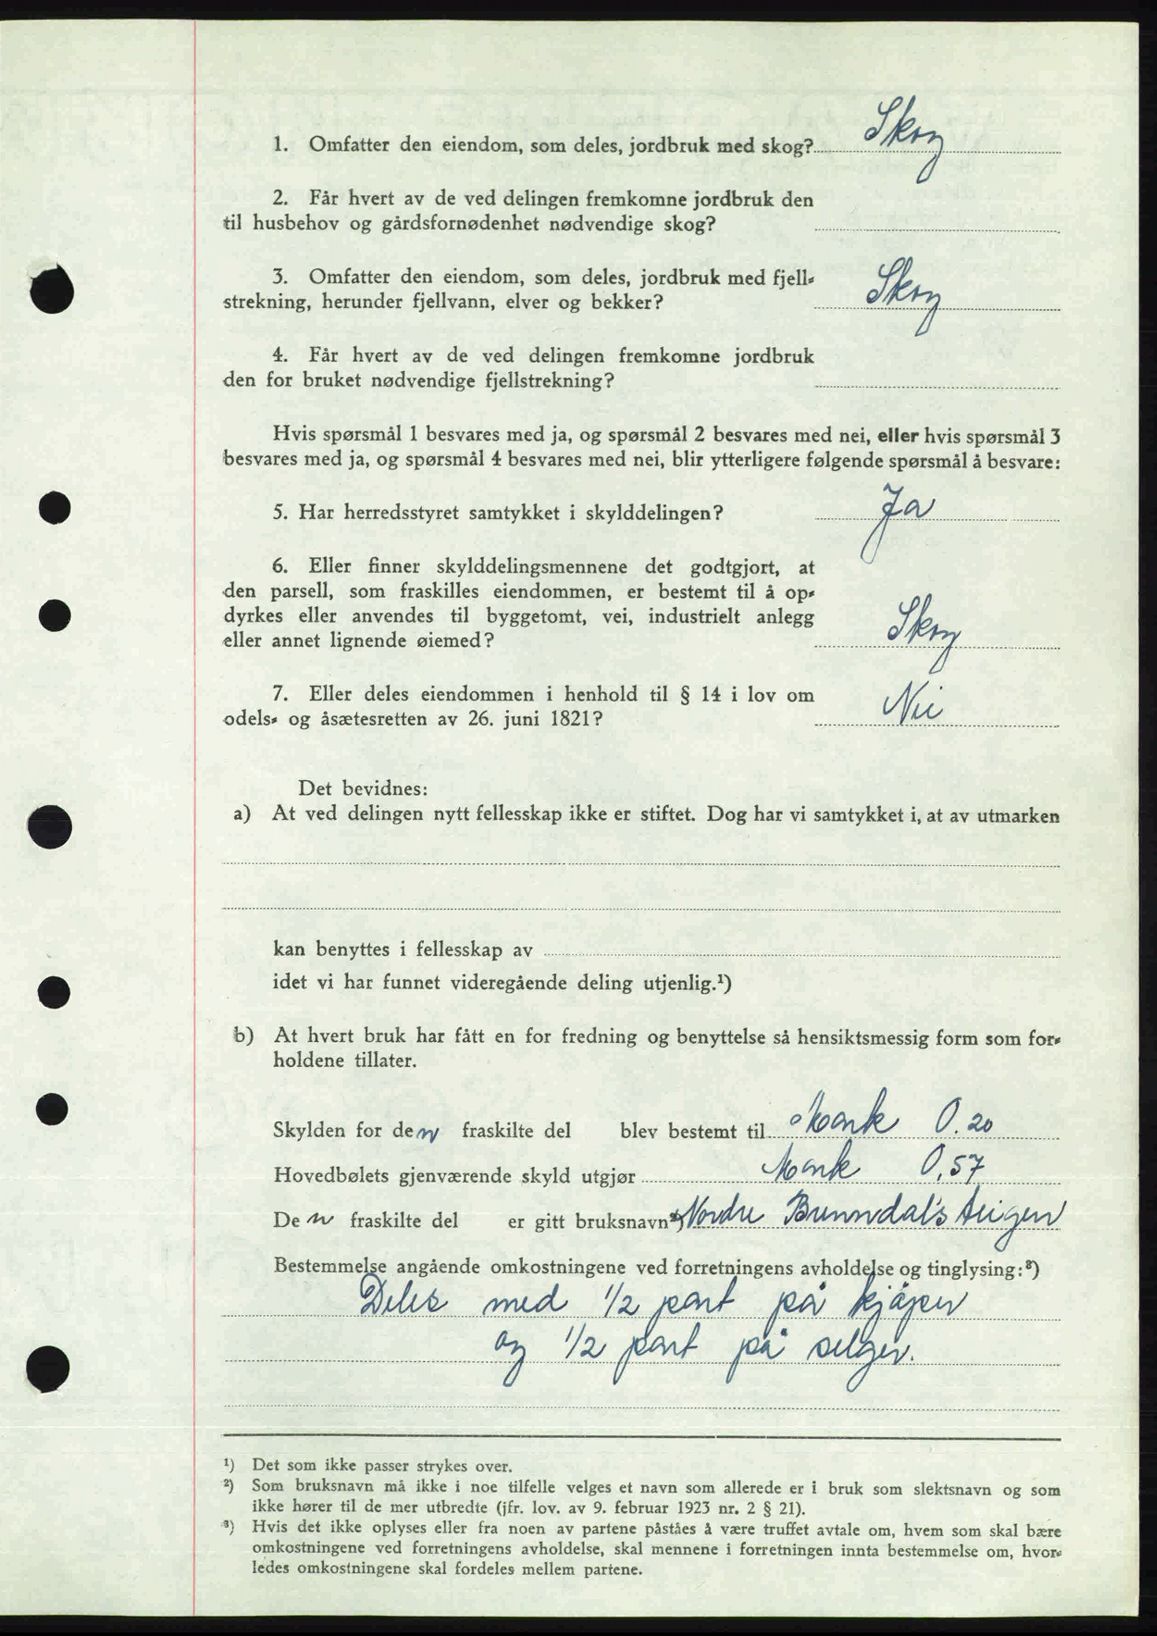 1. Omfatter den eiendom, som deles, jordbruk med skog? Skog
2. Får hvert av de ved delingen fremkomne jordbruk den
til husbehov og gårdsfornødenhet nødvendige skog?
3. Omfatter den eiendom, som deles, jordbruk med fjell-
strekning, herunder fjellvann, elver og bekker? Skog
4. Får hvert av de ved delingen fremkomne jordbruk
den for bruket nødvendige fjellstrekning?
Hvis spørsmål 1 besvares med ja, og spørsmål 2 besvares med nei, eller hvis spørsmål 3
besvares med ja, og spørsmål 4 besvares med nei, blir ytterligere følgende spørsmål å besvare:
5. Har herredsstyret samtykket i skylddelingen? Ja
6. Eller finner skylddelingsmennene det godtgjort, at
den parsell, som fraskilles eiendommen, er bestemt til å op-
dyrkes eller anvendes til byggetomt, vei, industrielt anlegg
eller annet lignende øiemed? Skog
7. Eller deles eiendommen i henhold til § 14 i lov om
odels- og åsætesretten av 26. juni 1821? Nei
Det bevidnes:
a) At ved delingen nytt fellesskap ikke er stiftet. Dog har vi samtykket i, at av utmarken
kan benyttes i fellesskap av
idet vi har funnet videregående deling utjenlig.¹)
b) At hvert bruk har fått en for fredning og benyttelse så hensiktsmessig form som for-
holdene tillater.
Skylden for den fraskilte del blev bestemt til Mark 0.20
Hovedbølets gjenværende skyld utgjør Mark 0,57
Den fraskilte del er gitt bruksnavn²) Nordre Brunndal's
Bestemmelse angående omkostningene ved forretningens avholdelse og tinglysing:³)
Deles med 1/2 part på kjøper
og 1/2 part på selger.
¹) Det som ikke passer strykes over.
²) Som bruksnavn må ikke i noe tilfelle velges et navn som allerede er i bruk som slektsnavn og som
ikke hører til de mer utbredte (jfr. lov. av 9. februar 1923 nr. 2 § 21).
³) Hvis det ikke oplyses eller fra noen av partene påståes å være truffet avtale om, hvem som skal bære
omkostningene ved forretningens avholdelse, skal mennene i forretningen innta bestemmelse om, hvor-
ledes omkostningene skal fordeles mellem partene.